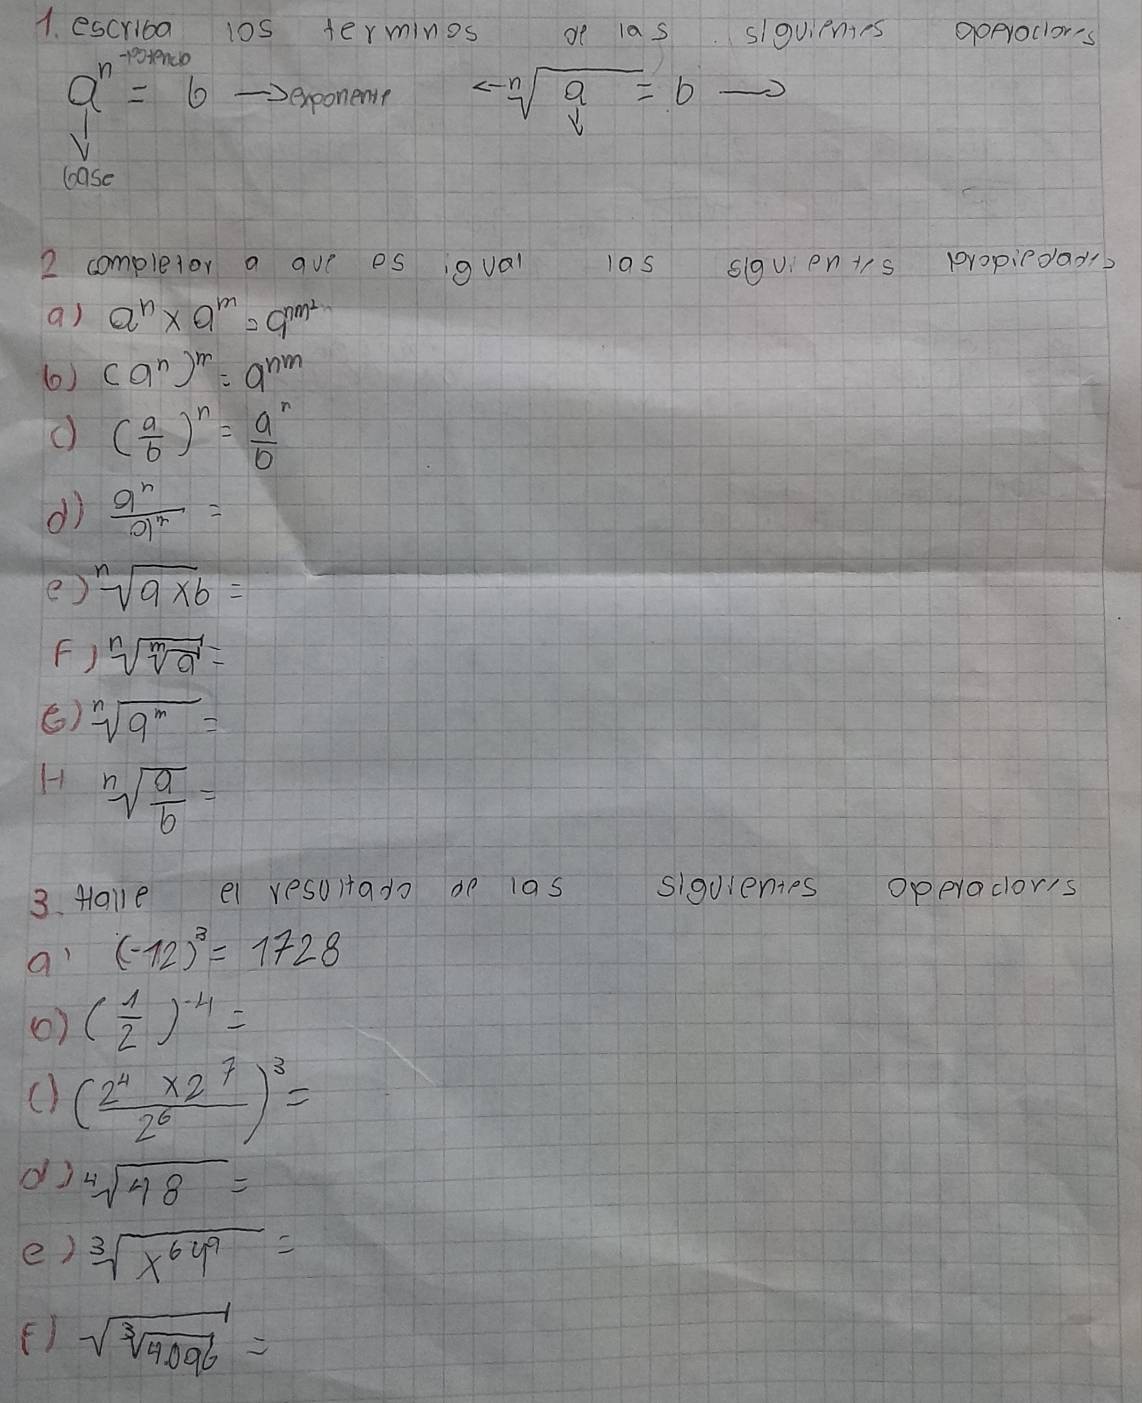 1. escriba los terminos de las siguientes operaciones
aⁿ → potencia = b → exponente ← ⁿ√a = b →
↓ ↓
base
2 completar a que es igual las siguientes propiedades
a) aⁿ x aᵐ = aⁿᵐ²
b) (aⁿ)ᵐ = aⁿᵐ
c) (a/b)ⁿ = aⁿ/b
d) aⁿ/aᵐ =
e) ⁿ√a x b =
F) ⁿ√ᵐ√a =
G) ⁿ√aᵐ =
H ⁿ√a/b =
3. Halle el resultado de las siguientes operaciones
a) (-12)³ = 1728
b) (1/2)⁻⁴ =
c) (2⁴ x 2⁷ / 2⁶)³ =
d) ⁴√48 =
e) ³√x⁶y⁹ =
f) √³√4.096 =